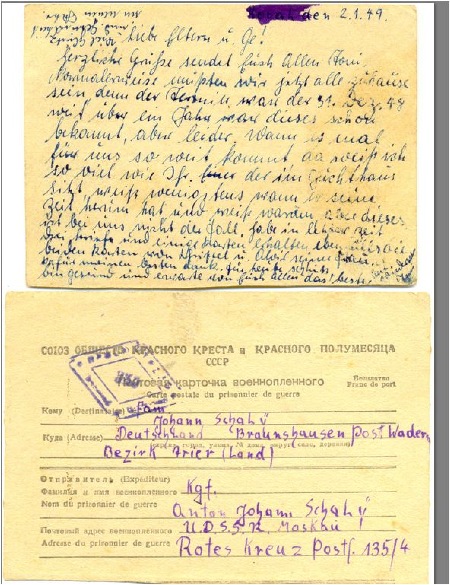 den 2.1.49.
Liebe Eltern u. Ge!
Herzliche Grüße sendet Euch Allen Toni.
Normalerweise müßten wir jetzt alle zuhause
sein denn der Termin war der 31. Dez. 48
weit über ein Jahr war dieses schon
bekannt, aber leider. Wann es mal
für uns so weit kommt, da weiß ich
so viel wie Ihr. der im Zuchthaus
sitzt, weiß wenigstens wann er seine
Zeit herum hat und weiß warum, aber dieses
ist bei uns nicht der Fall, habe in letzter Zeit
drei Briefe und einige Karten erhalten eben
beiden Karten von u.
meinen besten Dank. für heute Schluß,
bin gesund und erwarte von Euch Allen das beste.
СОЮЗ ОБЩЕСТВ КРАСНОГО КРЕСТА и КРАСНОГО ПОЛУМЕСЯЦА
СССР
Почтовая карточка военнопленного
Carte postale du prisonnier de guerre
Бесплатно
Franc de port
Кому (Destinataire) Fam
Johann Schalÿ
Куда (Adresse) Deutschland Braunshausen Post Wadern
Bezirk Trier (Land)
Отправитель (Expéditeur)
Фамилия и имя военнопленного Kgf.
Nom du prisonnier de guerre
Anton Johann Schalÿ
Почтовый адрес военнопленного U.D.S.S.R. Moskau
Adresse du prisonnier de guerre Rotes Kreuz Postf. 135/4